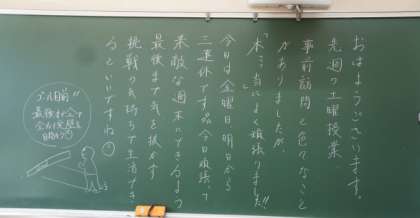 おはようございます。
先週の土曜授業
事前訪問と色々なこと
がありましたが、
本当によく頑張りました!!
今日は金曜日明日から
三連休です。今日頑張って
素敵な週末にできるよう
最後まで気を抜かず
挑戦の気持ちで生活でき
るといいですね。
ゴール目前!!
最後まで